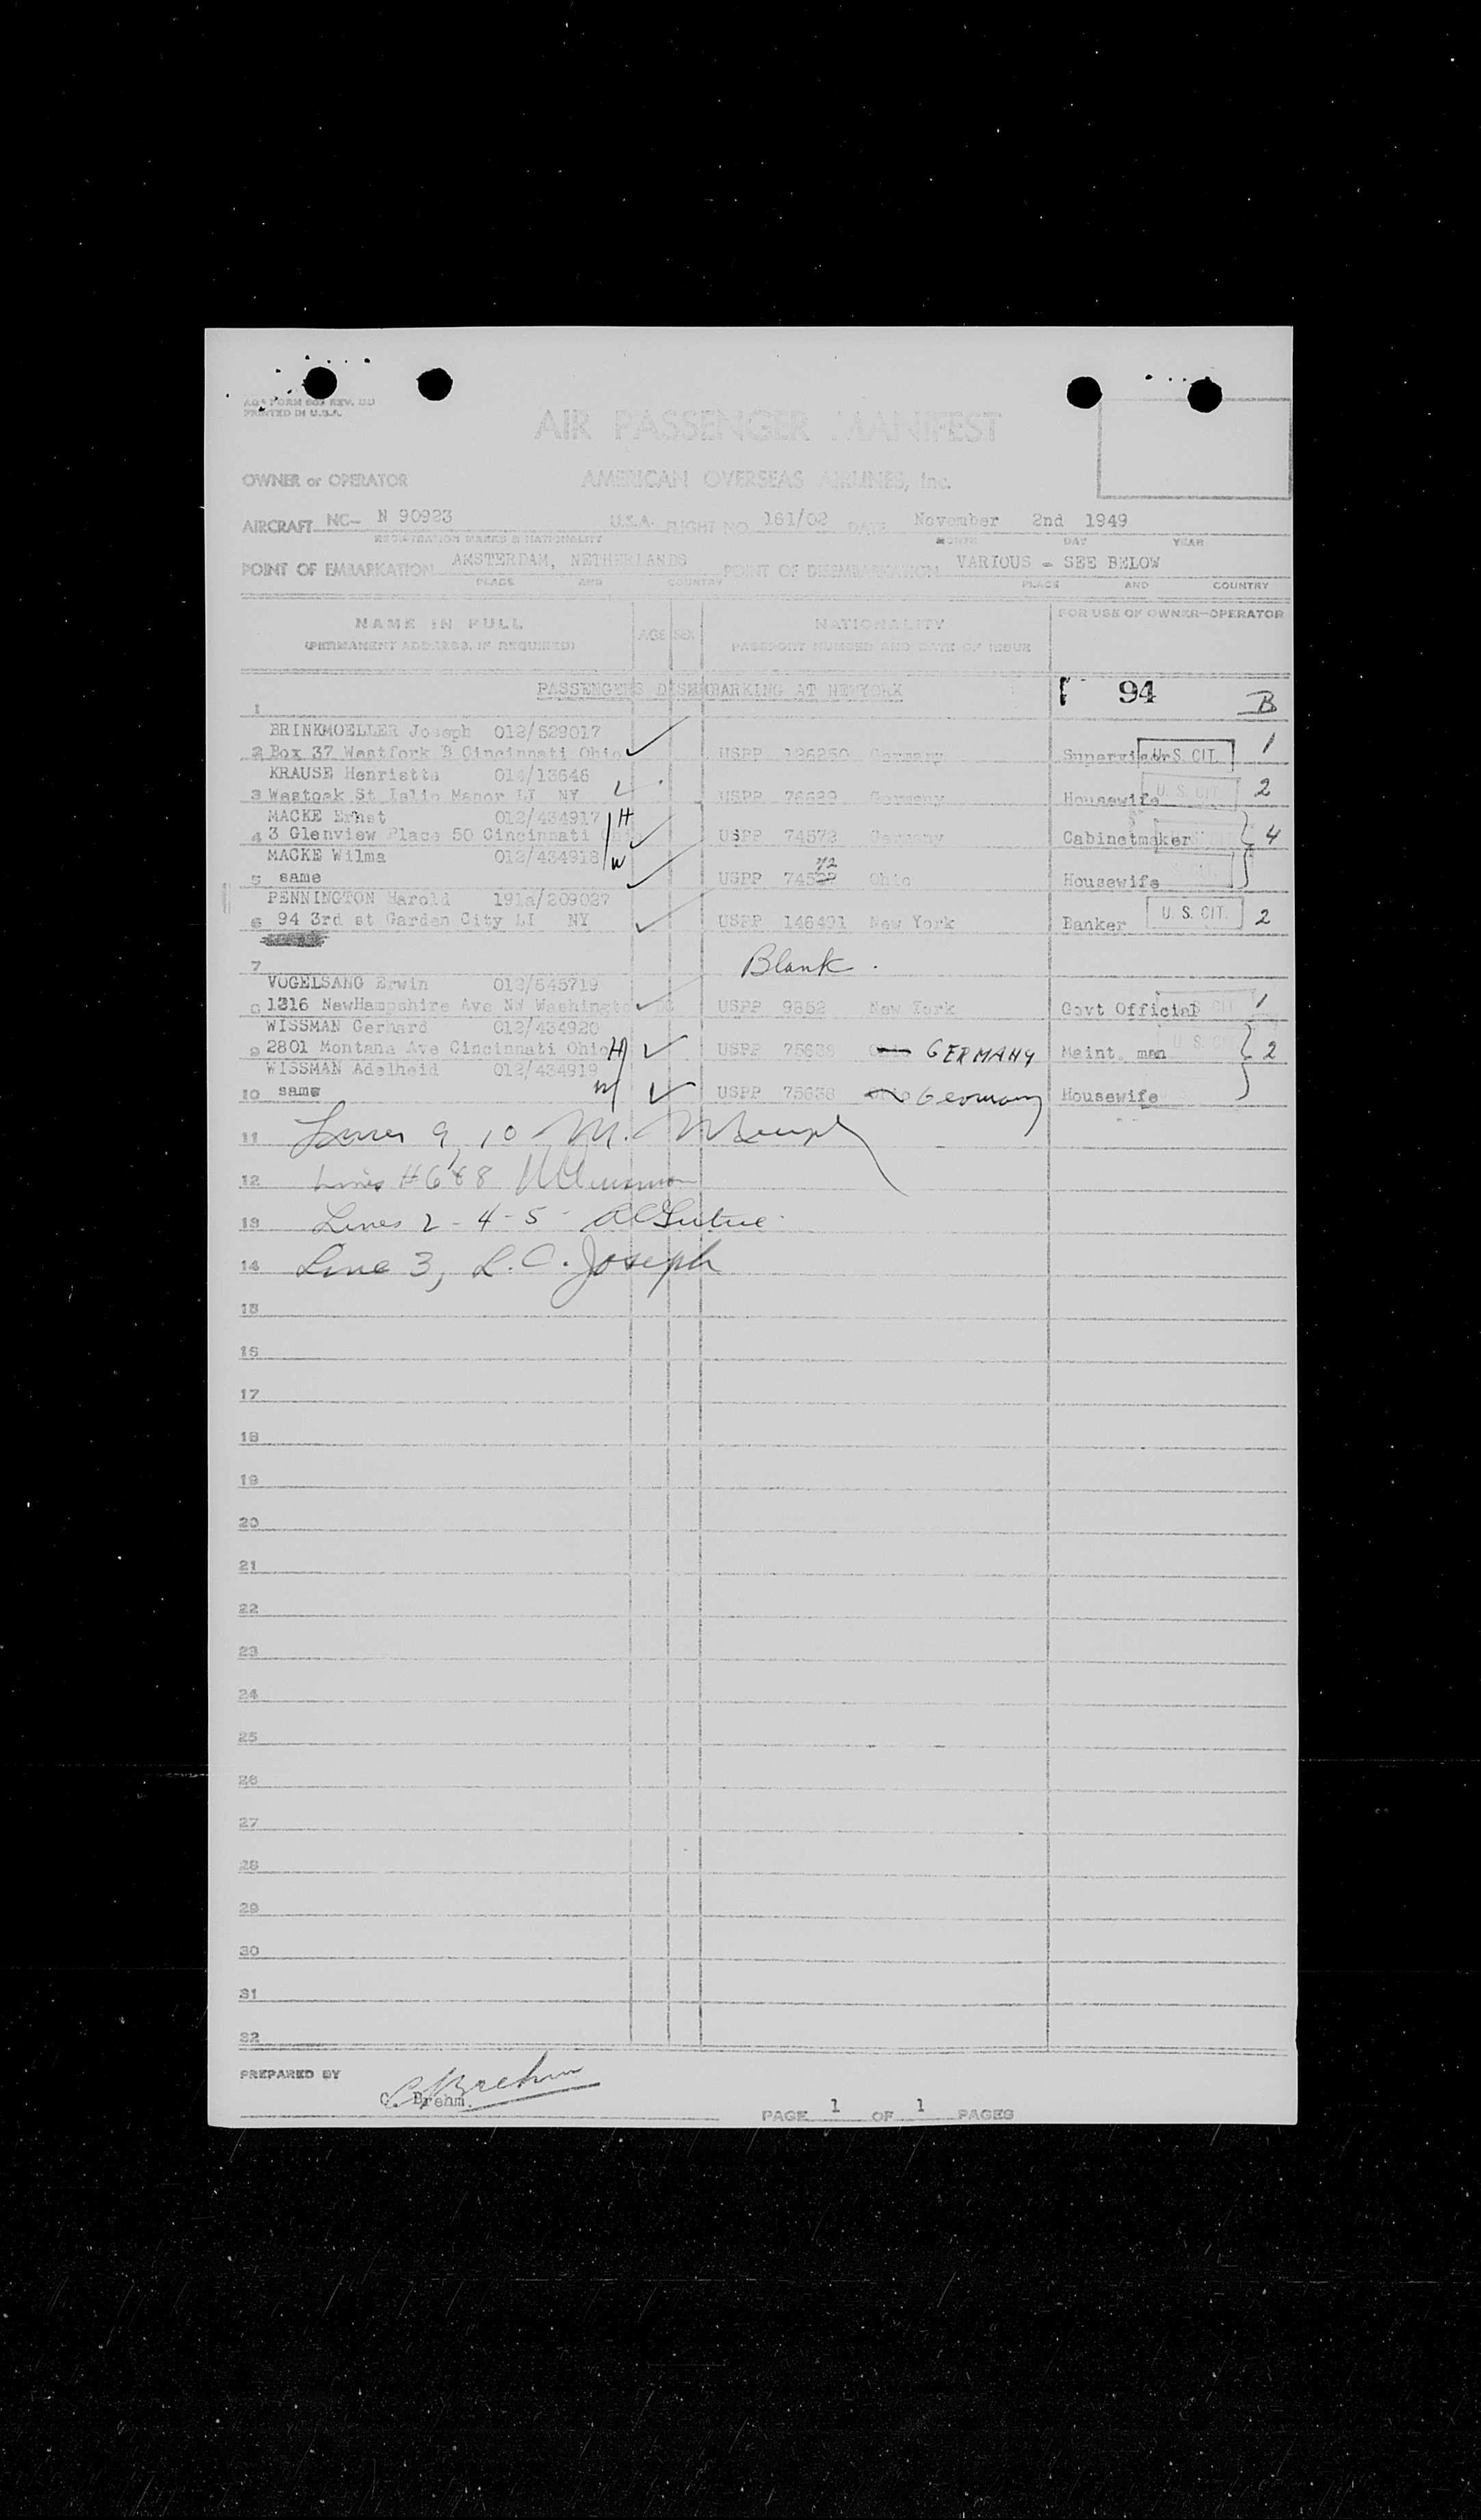 PRINTED IN U.S.A.
AIR PASSENGER MANIFEST
OWNER or OPERATOR AMERICAN OVERSEAS AIRLINES, Inc.
AIRCRAFT NC- N 90923 U.S.A. FLIGHT NO. 161/02 DATE November 2nd 1949
REGISTRATION MARKS & NATIONALITY MONTH DAY YEAR
POINT OF EMBARKATION AMSTERDAM, NETHERLANDS POINT OF DISEMBARKATION VARIOUS - SEE BELOW
PLACE AND COUNTRY PLACE AND COUNTRY
NAME IN FULL AGE SEX NATIONALITY FOR USE OF OWNER-OPERATOR
(PERMANENT ADDRESS, IF REQUIRED) PASSPORT NUMBER AND DATE OF ISSUE
PASSENGERS DISEMBARKING AT NEWYORK 94 B
1
BRINKMOELLER Joseph 012/529017
2 Box 37 Westfork Cincinnati Ohio USPP 126250 Germany Supervisor U.S. CIT. 1
KRAUSE Henrietta 014/13646
3 Westoak St Islip Manor LI NY USPP 76629 Germany Housewife U.S. CIT. 2
MACKE Ernst 012/434917 H
4 3 Glenview Place 50 Cincinnati Ohio USPP 74572 Germany Cabinetmaker 4
MACKE Wilma 012/434918 W
72
5 same USPP 74527 Ohio Housewife
PENNINGTON Harold 191a/209027
6 94 3rd st Garden City LI NY USPP 146491 New York Banker U.S. CIT. 2
7 Blank.
VOGELSANG Erwin 012/545719
8 1316 NewHampshire Ave NW Washington USPP 9852 New York Govt Official 1
WISSMAN Gerhard 012/434920
9 2801 Montana Ave Cincinnati Ohio H USPP 75638 GERMANY Maint. man U.S. CIT. 2
WISSMAN Adelheid 012/434919
10 same W USPP 75638 Ohio Germany Housewife
11 Lines 9, 10 M.
12 Lines #6 & 8
13 Lines 2 - 4 - 5 -
14 Line 3, L. C. Joseph
15
16
17
18
19
20
21
22
23
24
25
26
27
28
29
30
31
32
PREPARED BY C. Brehm
C. Brehm.
PAGE 1 OF 1 PAGES